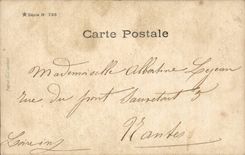 ★ Série N° 725
Carte Postale
Mademoiselle Albertine Lejean
rue du pont Sauvetout 9
Nantes